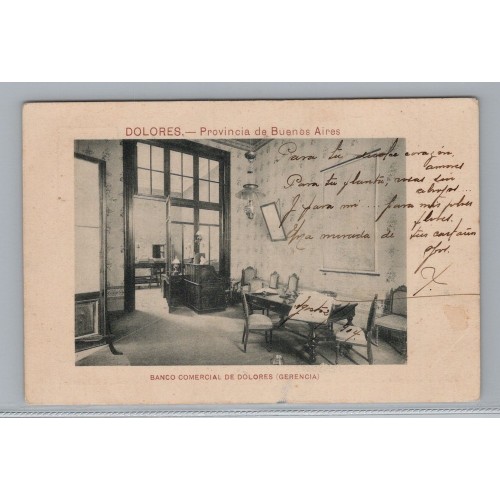 DOLORES.— Provincia de Buenos Aires
Para tu corazón
amores
Para tu planta, rosas sin
abrojos...
Y para mi... para mis
La mirada de tus
ojos.
Y.
Agosto 904
BANCO COMERCIAL DE DOLORES (GERENCIA)